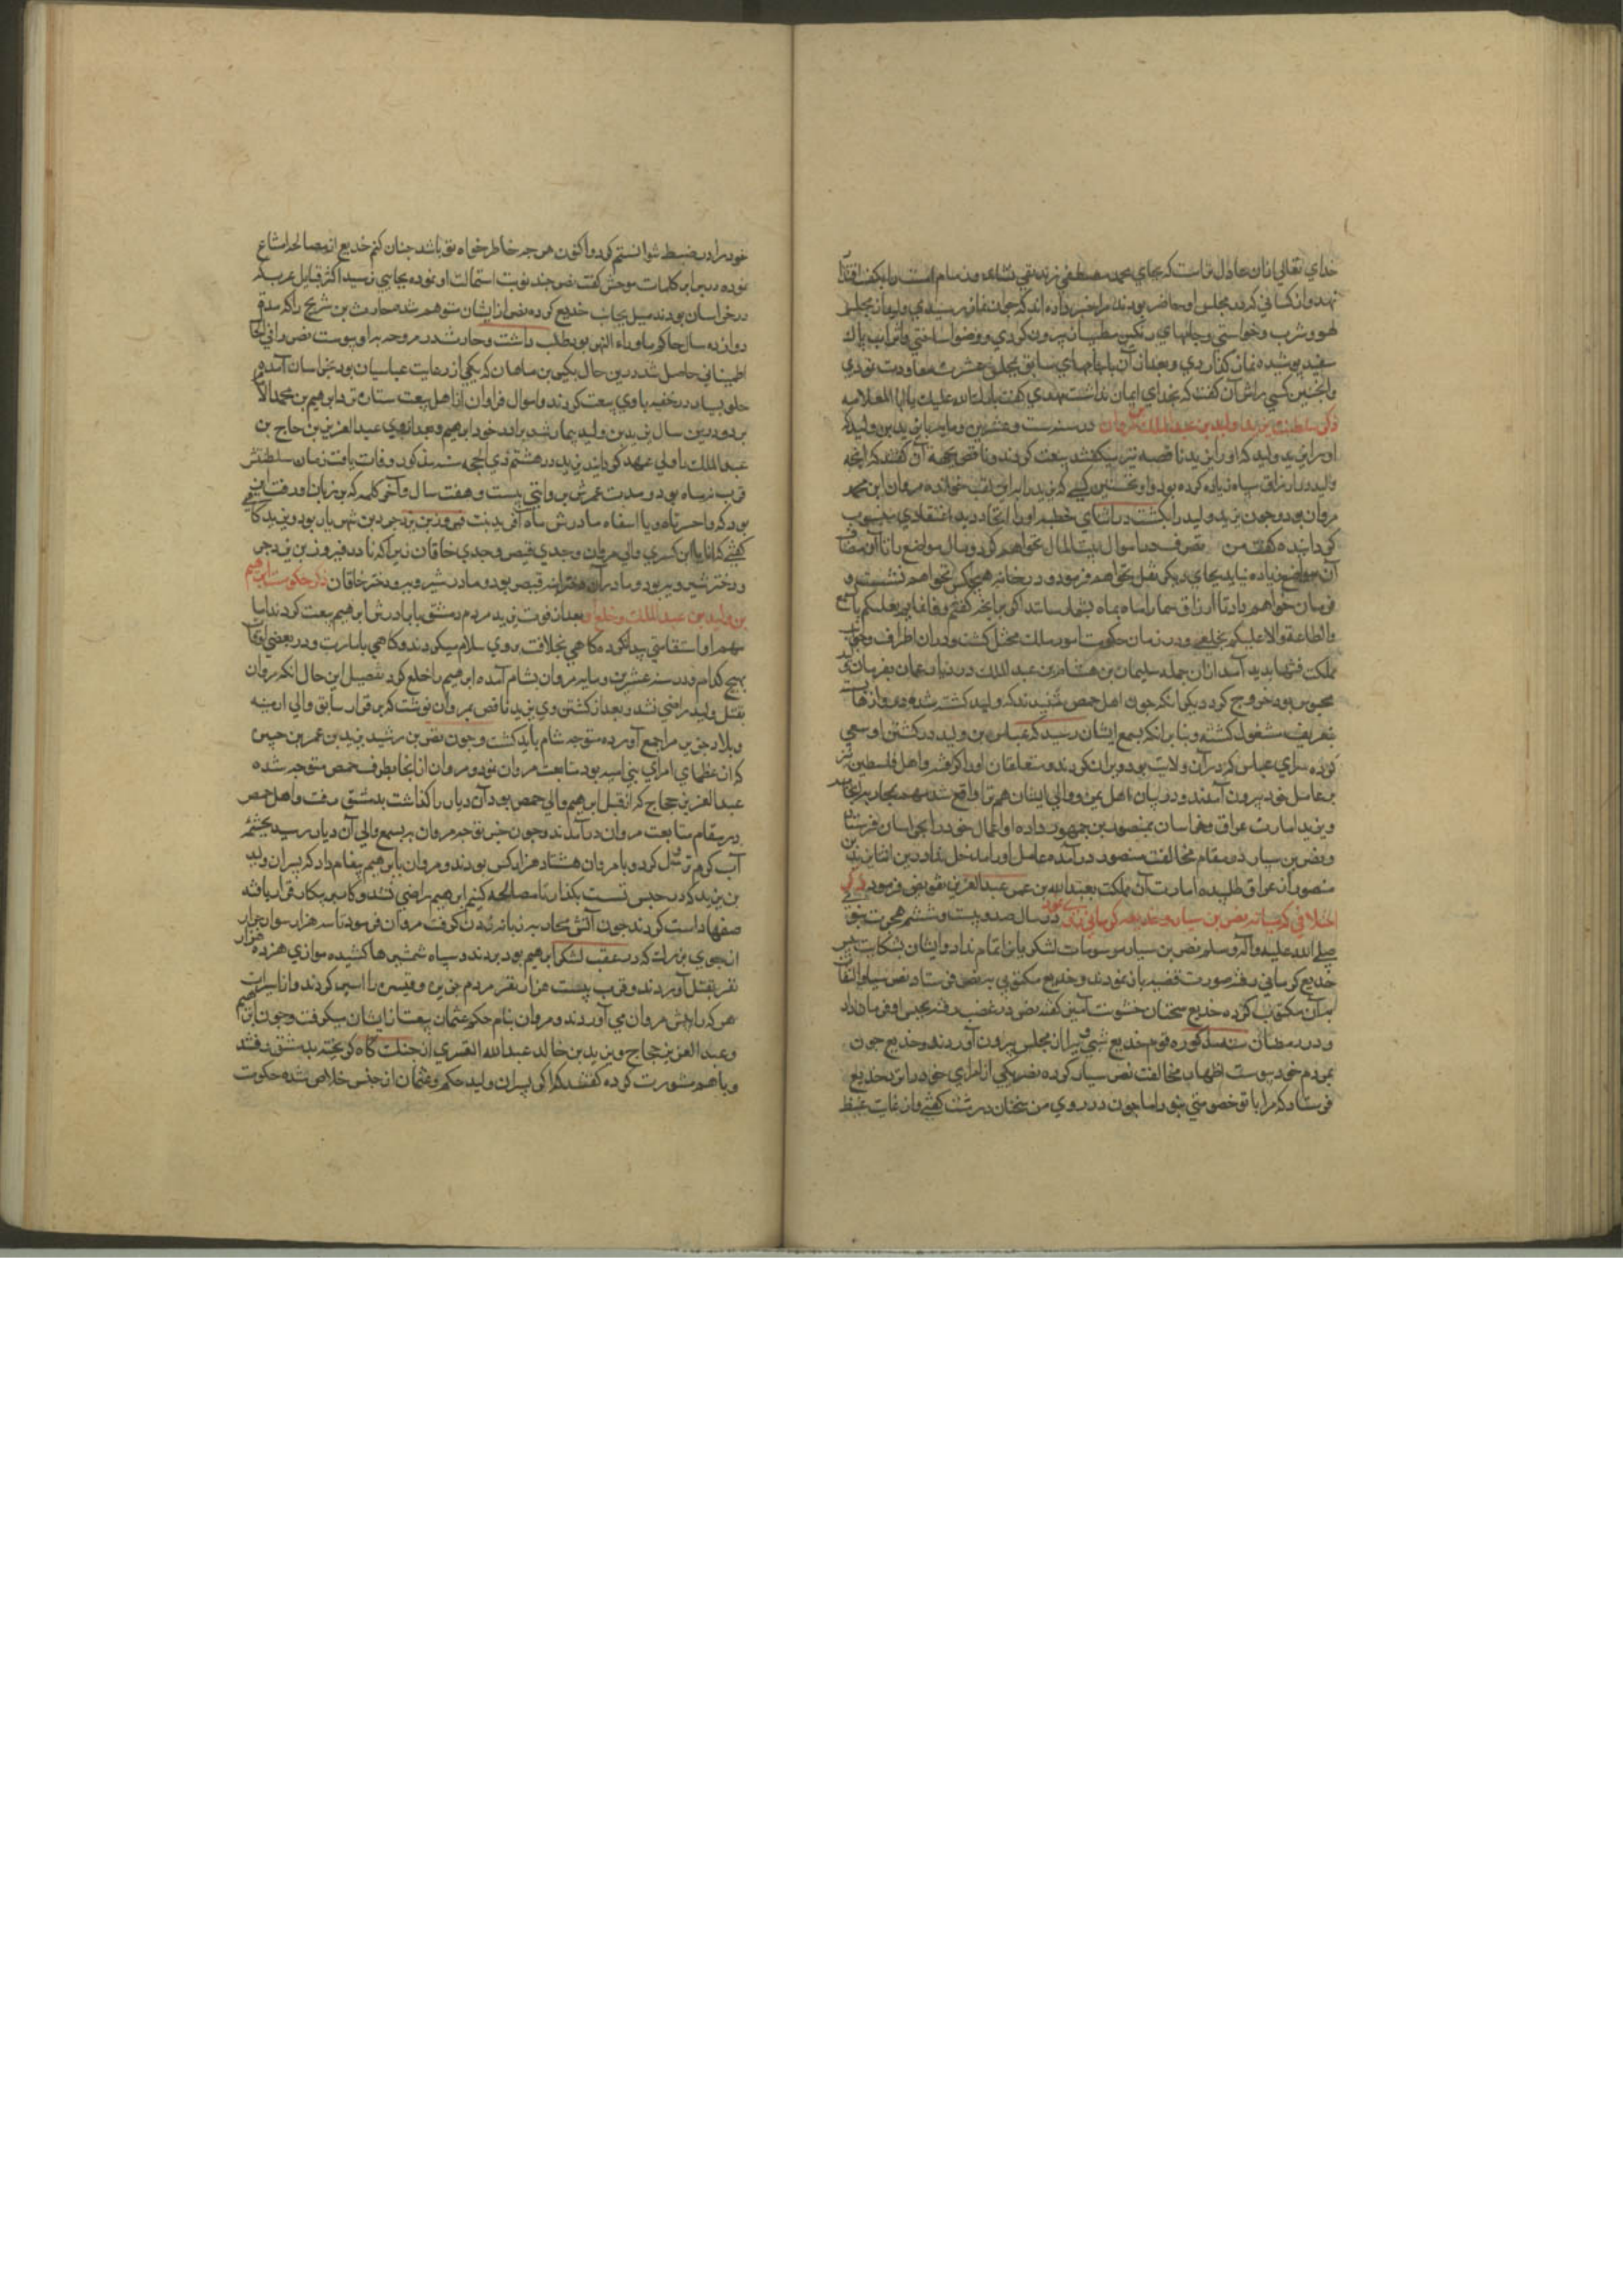 خداي تعالي ازان عادل تراست كه بجاي محمد مصطفي زنديقي نشاند و زمام امت را بكف اقتدا
نهد و از كساني كه در مجلس او حاضر بودند مرا خبر داده اند كه چون نماز در رسيدي وليد از مجلس
لهو و شرب برخواستي و جامهاي رنكين مطيب بيرون كردي و وضو ساختي و اثواب پاك
سفيد پوشيده نماز كذاردي و بعد از آن با جامهاي سابق بمجلس عشرت معاودت نمودي
و اينچنين كسي را نتوان كفت كه بخداي ايمان نداشت مهدي كفت بارك الله عليك يا ابا العلاثه
ذكر سلطنت يزيد بن وليد بن عبد الملك بن مروان در سنه ست و عشرين و مايه با يزيد بن وليد كه
او را يزيد وليد كه او را يزيد ناقص نيز ميكفتند بيعت كردند و ناقص بجهة آن كفتند كه آنچه
وليد در ارزاق سپاه زياده كرده بود واو نخستين كسي كه يزيد را براين لقب خوانده مروان ابن محمد
مروان بود و چون يزيد وليد را بكشت در اثناي خطبه او را بالحاد و بد اعتقادي منسوب
كردانيده كفت من تصرف در اموال بيت المال نخواهم كرد و مال مواضع را تا از مصارف
آن مواضع زياده نيايد بجاي ديكر نقل نخواهم فرمود و در بخانه بر هيچكس نخواهم بست و
فرمان خواهم داد تا ارزاق شما را ماه بماه بشما رسانند اكر برانچه كفتم وفا نمايم فعليكم بالسمع
والطاعة و الا عليكم بخلعي و در زمان حكومت او امور ملك مختل كشت و در ان اطراف و جوانب
مملكت فتنها پديد آمد ازان جمله سليمان بن هشام بن عبد الملك در زندان عمان بفرمان وليد
محبوس بود خروج كرد ديكر آنكه چون اهل حمص شنيدند كه وليد كشته شده در وازها
بتعزيت مشغول كشته و بنابر آنكه بسمع ايشان رسيد كه عباس بن وليد در كشتن او سعي
نموده سراي عباس كه در آن ولايت بود ويران كردند و متعلقان او را كرفتند و اهل فلسطين نيز
بر عامل خود بيرون آمدند و در ميان اهل يمن و والي ايشان هم نزاع واقع شد مهم بمحاربه انجاميد
و يزيد امارت عراق و خراسان بمنصور بن جمهور داده او عمال خود را بخراسان فرستاد
و نصر بن سيار در مقام مخالفت منصور در آمده عامل او را مدخل نداد درين اثنا يزيد بن
منصور از عراق طلبيده امارت آن مملكت بعبد الله بن عمر بن عبد العزيز تفويض فرمود ذكر
اختلافي كه ميانه نصر بن سيار و خديع كرماني روي نمود در سال صد و بيست و ششم هجرت نبوي
صلي الله عليه واله وسلم نصر بن سيار مرسومات لشكريان تمام نداد و ايشان بشكايت پيش
خديع كرماني رفته صورت قضيه باز نمودند و خديع مكتوبي به نصر فرستاد نصر سيار التفات
بدآن مكتوب نكرده خديع سخنان خشونت آميز كفته نصر در غضب رفته بحبس او فرمان داد
و در رمضان سنه مذكوره قوم خديع شبي ويرا از مجلس بيرون آوردند و خديع چون
بمردم خود پيوست اظهار مخالفت نصر سيار كرده نصر يكي از امراي خود را نزد خديع
فرستاد كه مرا با تو خصومتي نبود اما چون در روي من سخنان درشت كفتي و از غايت غيظ
خود را در ضبط نتوانستم كرد و اكنون هر چه خاطر خواه تو باشد چنان كنم خديع از مصالحه امتناع
نموده در برابر كلمات موحش كفت نصر چند نوبت استمالت او نموده بجايي نرسيد اكثر قبايل عرب كه
در خراسان بودند ميل بجانب خديع كرده نصر از ايشان متوهم شد حارث بن شريح را كه مدة
دوازده سال حاكم ماوراء النهر بود طلب داشت و حارث در مرو حربه باو پيوست نصر را في الجمله
اطميناني حاصل شد درين حال يكيي بن ماهان كه يكي از دعات عباسيان بود بخراسان آمد و
خلق بسيار در خفيه باوي بيعت كردند و اموال فراوان از اهل بيعت ستانده نزد ابراهيم بن محمد الامام
برد و درين سال يزيد بن وليد بيمار شد برادر خود ابراهيم و بعد از وي عبد العزيز بن حجاج بن
عبد الملك را ولي عهد كردانيد يزيد در هشتم ذي الحجه سنه مذكور وفات يافت زمان سلطنتش
قرب شش ماه بود و مدت عمرش بروايتي بيست و هفت سال و آخر كلمه كه بر زبان او رفت اين
بود كه واحسرتاه و يا اسفاه مادرش شاه آفريد بنت فيروز بن يزدجرد بن شهريار بود و يزيد كاه
كفتي كه انا ابن كسري و ابي مروان و جدي قيصر و جدي خاقان زيرا كه مادر فيروز بن يزدجرد
دختر شيرويه بود و مادر آن دختر قيصر بود و مادر شيرويه دختر خاقان ذكر حكومت ابراهيم
بن وليد بن عبد الملك و خلع او بعد از فوت يزيد مردم دمشق با برادرش ابراهيم بيعت كردند اما
مهم او استقامتي پيدا نكرد كاهي بخلافت بروي سلام ميكردند و كاهي بامارت و در بعضي اوقات
بهيچ كدام و در سنه عشرين و مايه مروان بشام آمده ابراهيم را خلع كرد تفصيل اين حال آنكه مروان
بقتل وليد راضي نشد و بعد از كشتن وي يزيد ناقص بمروان نوشت كه بر قرار سابق والي ارمنيه
و بلاد جزيره را جمع آورده متوجه شام بايد كشت و چون نصر بن رشيد يزيد بن عمر بن حبين
كه از عظماي امراي بني اميه بود متابعت مروان نمود و مروان از انجا بطرف حمص متوجه شده
عبد العزيز بن حجاج كه از قبل ابراهيم والي حمص بود آن ديار را كذاشت بدمشق رفت و اهل حمص
در مقام متابعت مروان در آمدند و چون خبر توجه مروان بر بسمع والي آن ديار رسيد بچشمه
آب كرم نزول كرد و با مروان هشتاد هزار كس بودند و مروان بابراهيم پيغام داد كه پسران وليد
بن يزيد كه در حبس تست بكذار تا مصالحه كنيم ابراهيم راضي نشد و كار بر پيكار قرار يافته
صفها راست كردند چون آتش محاربه زبانه زدن كرفت مروان فرمود تا سه هزار سوار جرار
از جوي بزرك كه در عقب لشكر ابراهيم بود بردند و سپاه شمشيرها كشيده موازي هزده هزار
نفر بقتل آوردند و قرب بيست هزار نفر مردم جزيره و قيسريه را اسير كردند و از اسيران
هر كه را پيش مروان مي آوردند و مروان بنام حكم و عثمان بيعت از ايشان ميكرفت و چون ابراهيم
و عبد العزيز حجاج و يزيد بن خالد عبد الله القسري از جنك كاه كريخته بدمشق رفتند
و با هم مشورت كرده كفتند كه اكر پسران وليد حكم و عثمان از حبس خلاص شده حكومت